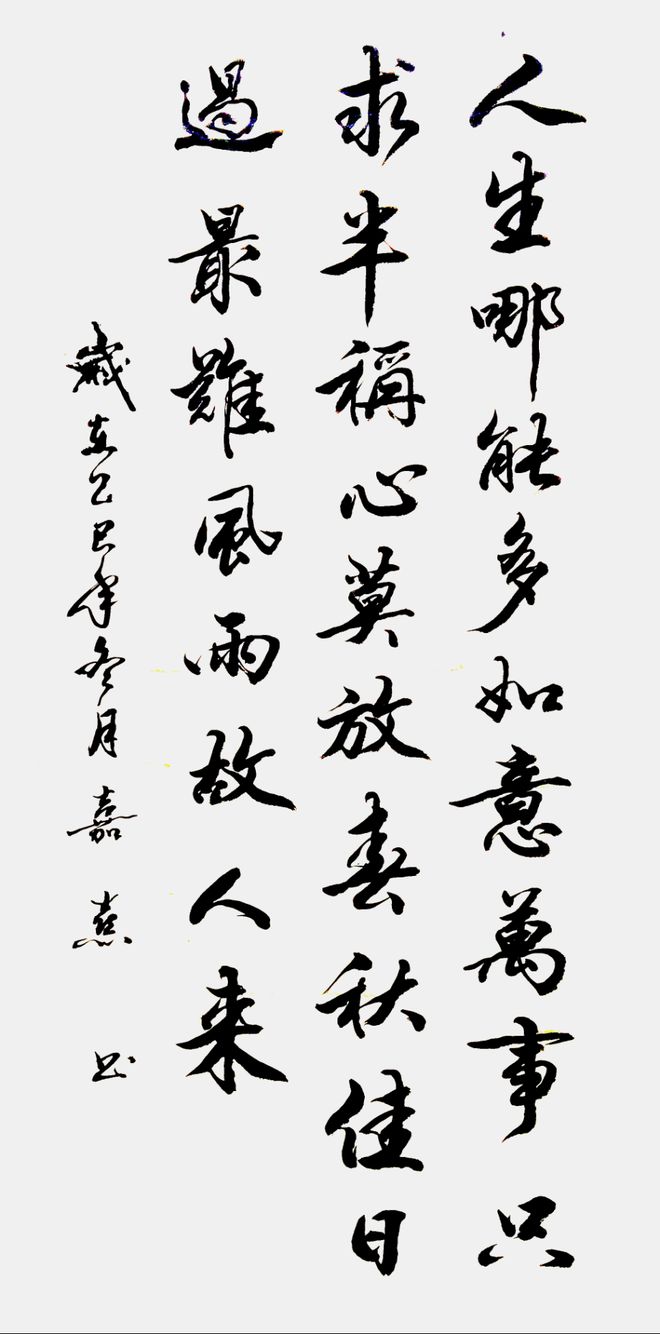 人生哪能多如意萬事只
求半稱心莫放春秋佳日
過最難風雨故人来
歲在乙巳年冬月嘉熹书